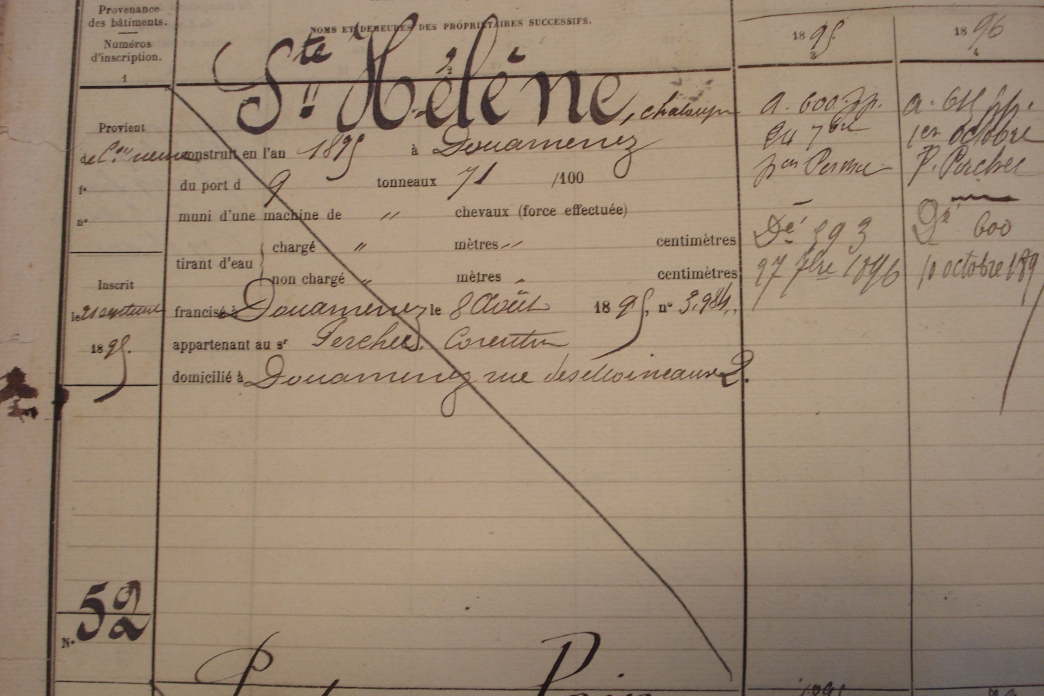 Provenance
des bâtiments.
Numéros
d'inscription.
1
NOMS ET DEMEURES DES PROPRIÉTAIRES SUCCESSIFS.
2
1895
3
1896
4
Ste Hélène, chaloupe
Provient
de Con neuve
fo
no
construit en l'an 1895 à Douarnenez
du port d 9 tonneaux 71 /100
muni d'une machine de " chevaux (force effectuée)
tirant d'eau
chargé " mètres " centimètres
non chargé " mètres " centimètres
Inscrit
le 21 septembre
1895.
francisé à Douarnenez le 8 Août 1895, no 3.984.
appartenant au sr Perchec Corentin
domicilié à Douarnenez rue des Moineaux 2.
a. 600
24 7bre
Dé 593
27 7bre 1896
a. 611
1er octobre
P. Perchec
Dé 600
10 octobre 189
No 52